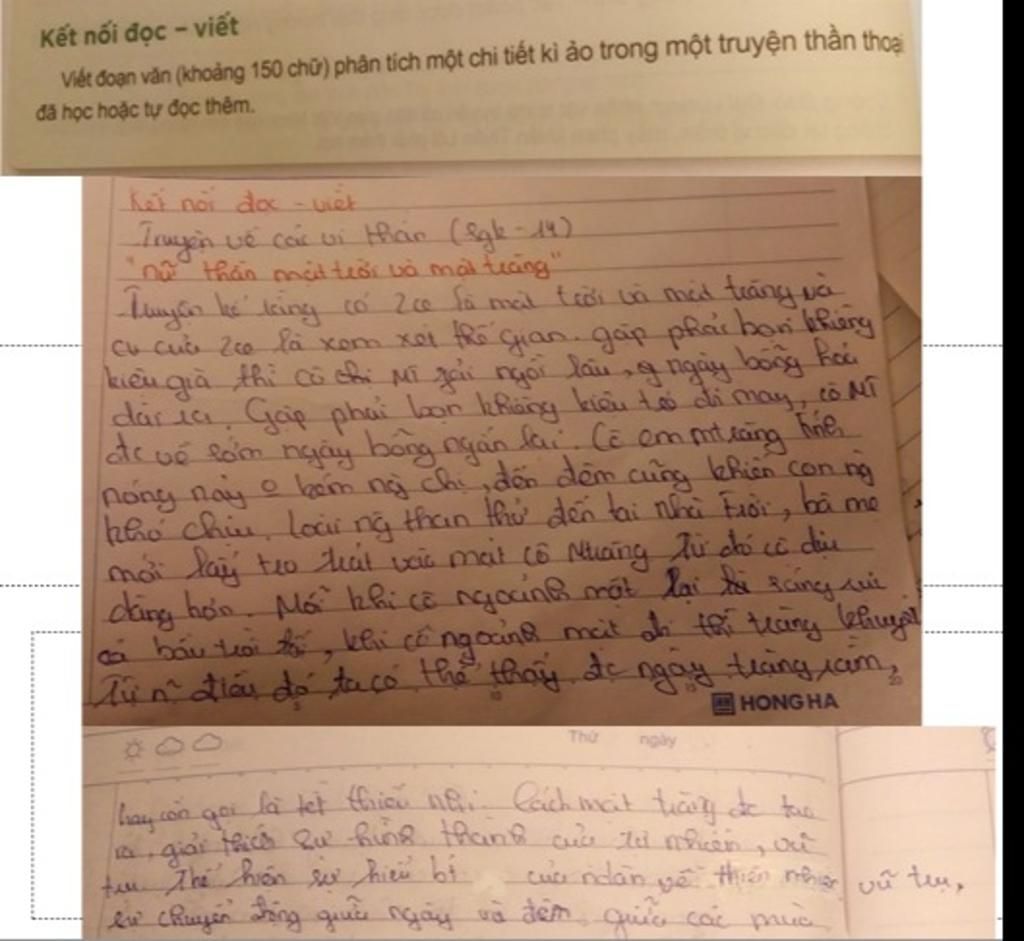 Kết nối đọc – viết
Viết đoạn văn (khoảng 150 chữ) phân tích một chi tiết kì ảo trong một truyện thần thoại
đã học hoặc tự đọc thêm.
Kết nối đọc - viết
Truyện về các vị thần (Sgk - 14)
"nữ thần mặt trời và mặt trăng"
Truyện kể rằng có 2 là mặt trời và mặt trăng và
của 2 là xem xét thế gian. gặp phải bọn khiêng
kiệu già thì cô chị phải ngồi lâu, ngày bỗng hoá
dài ra. Gặp phải bọn khiêng kiệu trẻ đi may, cô
đc về sớm ngày bỗng ngắn lại. Cô em tính
nóng nảy kém ng chị, đến đêm cũng khiến con ng
khó chịu. Loài ng than thở đến tai nhà trời, bà mẹ
mới lấy tro trát vào mặt cô Từ đó cô dịu
dàng hơn. Mỗi khi cô ngoảnh mặt lại là sáng
cả bầu trời, khi cô ngoảnh mặt đi thì trăng khuyết
Từ n~ điều đó ta có thể thấy đc ngày trăng rằm,
HONG HA
Thứ ngày
hay còn gọi là tết thiếu nhi. Cách mặt trăng đc tạo
ra, giải thích sự hình thành của tự nhiên, vũ
trụ. Thể hiện sự hiểu bt của ndân về thiên nhiên vũ trụ,
sự chuyển động giữa ngày và đêm, giữa các mùa